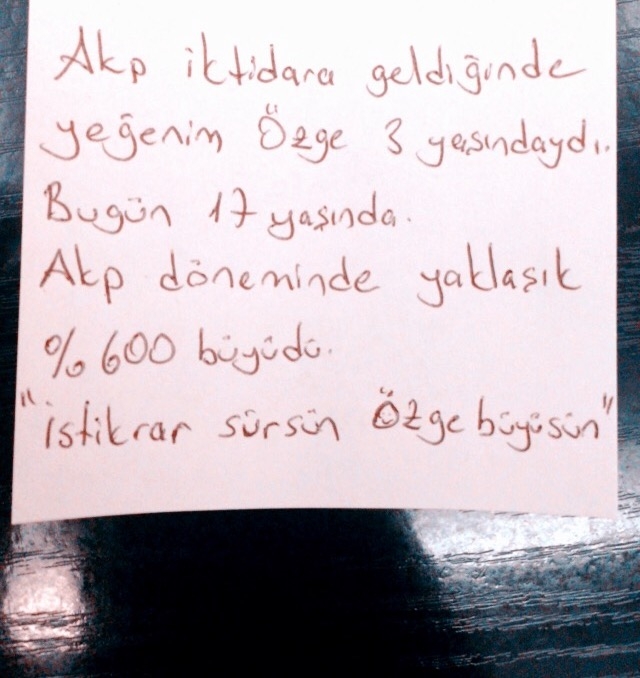 Akp iktidara geldiğinde
yeğenim Özge 3 yaşındaydı.
Bugün 17 yaşında.
Akp döneminde yaklaşık
% 600 büyüdü.
"İstikrar sürsün Özge büyüsün"